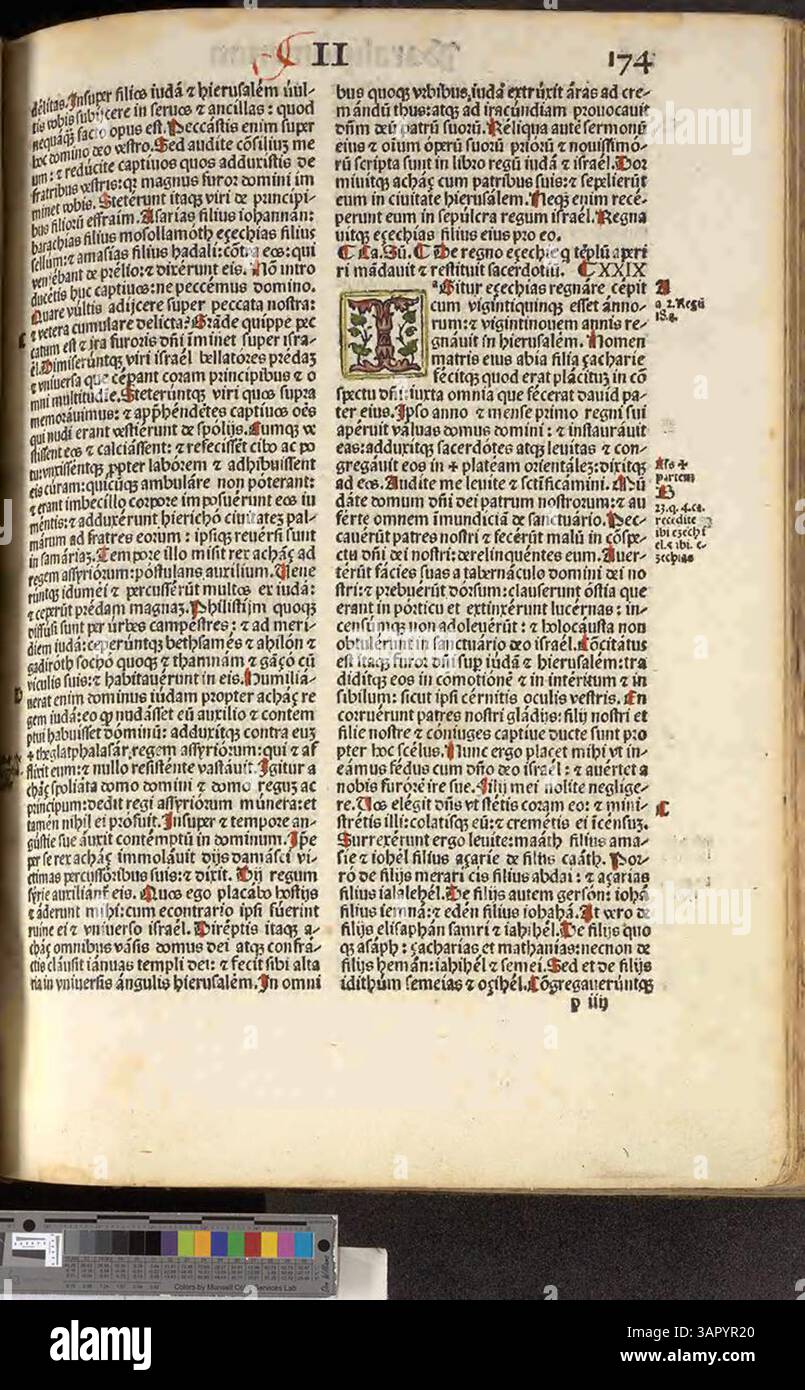 II
174
délitas. Insuper filios iudá ⁊ hierusalém vul-
tis vobis subijcere in seruos ⁊ ancillas: quod
nequáq̃ȝ facto opus est. Peccástis enim super
hoc domino deo vestro. Sed audite cõsilium me
um: ⁊ redúcite captiuos quos adduxistis de
fratribus vestris: qꝛ magnus furor domini im
minet vobis. Steterúnt itaqȝ viri de principi-
bus filiorũ effraim. Asarias filius iohannan:
barachias filius mosollamóth eçechias filius
sellum: ⁊ amasías filius hadali: cõtra eos: qui
veniébant de prélio: ⁊ dixérunt eis. Nõ intro
ducetis huc captiuos: ne peccémus domino.
Quare vultis adijcere super peccata nostra:
⁊ vetera cumulare delicta? Grãde quippe pec
catum est ⁊ ira furoris dñi íminet super isra-
él. Dimiserúntqȝ viri israél bellatores prédaȝ
⁊ vniuersa que cépant coram principibus ⁊ o
mni multitudíe. Steterúntqȝ viri quos supra
memorauimus: ⁊ apphéndétes captiuos oẽs
qui nudi erant vestiérunt de spólijs. Cumqȝ ve
stíssent eos ⁊ calciássent: ⁊ refecissét cibo ac po
tu: vnxissentqȝ ꝓpter labórem ⁊ adhibuissent
eis cúram: quicũqȝ ambuláre non póterant:
⁊ erant imbecillo corpore imposuérunt eos iu
méntis: ⁊ adduxérunt hierichó ciuitateȝ pal-
márum ad fratres eorum: ipsiqȝ reuérsi sunt
in samáriaȝ. Tempore illo misit rex acháç ad
regem assyriórum: póstulans auxilium. Uene
rũtqȝ idumei ⁊ percussérũt multos ex iuda:
⁊ cepérũt prédam magnaȝ. Philistijm quoqȝ
diffúsi sunt per úrbes campéstres: ⁊ ad meri-
diem iudá: ceperúntqȝ bethsamés ⁊ ahilón ⁊
gadiróth sochó quoqȝ ⁊ thamnám ⁊ gáçó cũ
viculis suis: ⁊ habitauérunt in eis. Humiliá-
uerat enim dominus iudam propter acháç re
gem iudá: eo ꝙ nudásset eũ auxilio ⁊ contem
ptui habuisset dóminũ: adduxitqȝ contra euȝ
+ theglatphalasár regem assyriórum: qui ⁊ af
flixit eum: ⁊ nullo resisténte vastáuit. Igitur a
cháç spoliáta domo domini ⁊ domo reguȝ ac
príncipum: dedit regi assyriórum múnera: et
tamén nihil ei prófuit. Insuper ⁊ tempore an-
gústie sue áuxit contémptũ in dominum. Ipse
per se rex acháç immoláuit dijs damásci vi-
ctimas percussóribus suis: ⁊ dixit. Dij regum
sýrie auxiliant͛ eis. Quos ego placábo hostijs
⁊ áderunt mihi: cum econtrario ipsi fúerint
ruine ei ⁊ vniuerso israél. Diréptis itaqȝ a-
cháç omnibus vásis domus dei atqȝ confra-
ctis cláusit iánuas templi dei: ⁊ fecit sibi alta
ria in vniuersis ángulis hierusalém. In omni
bus quoqȝ vrbibus, iudá extrúxit áras ad cre-
mándũ thus: atqȝ ad iracúndiam prouocauit
dñm deũ patrũ suorũ. Réliqua autẽ sermonũ
eius ⁊ oĩum óperũ suorũ priórũ ⁊ nouissimó-
rũ scripta sunt in libro regũ iudá ⁊ israél. Dor
miuitqȝ acháç cum patribus suis: ⁊ sepeliérũt
eum in ciuitate hierusalem. Neqȝ enim recé-
perunt eum in sepúlcra regum israél. Regna
uitqȝ eçechias filius eius pro eo.
¶ Ca. Sũ. ¶ De regno eçechíe q tẽplũ aperi
ri mãdauit ⁊ restituit sacerdotiũ. ¶ XXIX
Igitur eçechias regnáre cépit
cum vigintiquinqȝ esset ánno-
rum: ⁊ vigintinouem annis re-
gnáuit in hierusalém. Nomen
matris eius abia filia çacharie
fécitqȝ quod erat plácituȝ in cõ
spectu dñi: iuxta omnia que fécerat dauid pa-
ter eius. Ipso anno ⁊ mense primo regni sui
apéruit váluas domus domini: ⁊ instauráuit
eas: adduxitqȝ sacerdótes atqȝ leuitas ⁊ con-
gregáuit eos in + plateam orientáleȝ: dixitqȝ
ad eos. Audite me leuite ⁊ sctificámini. Mũ
dáte domum dñi dei patrum nostrorum: ⁊ au
ferte omnem ímundiciã de sanctuário. Pec-
cauérũt patres nostri ⁊ fecérũt malũ in cõspe-
ctu dñi dei nostri: derelinquéntes eum. Auer-
térũt fácies suas a tabernáculo domini dei no
stri: ⁊ prebuérũt dórsum: clauserunt óstia que
erant in pórticu et extinxérunt lucérnas: in-
censúmqȝ non adoleuérũt: ⁊ holocáusta non
obtulérunt in sanctuário deo israél. Cõcitátus
est itaqȝ furor dñi suꝑ iudá ⁊ hierusalém: tra
diditqȝ eos in cõmotiónẽ ⁊ in intéritum ⁊ in
síbilum: sicut ipsi cérnitis oculis vestris. En
corruérunt patres nostri gládijs: filij nostri et
filie nostre ⁊ cóniuges captiue ducte sunt pro
pter hoc scélus. Nunc ergo placet mihi vt in-
eámus fédus cum dño deo israél: ⁊ auértet a
nobis furórẽ ire sue. Filij mei nolite neglige-
re. Uos elégit dñs vt stétis coram eo: ⁊ mini-
strétis illi: colatisqȝ eũ: ⁊ cremétis ei ĩcensuȝ.
Surrexérunt ergo leuite: maáth filius ama-
sie ⁊ iohél filius açarie de filijs caáth. Por-
ró de filijs merari cis filius abdai: ⁊ açarias
filius ialalehél. De filijs autem gersón: iohá
filius iemná: ⁊ edén filius iohahá. At vero de
filijs elisaphán samri ⁊ iahihél. De filijs quo
qȝ asáph: çacharias ⁊ mathanias: necnon de
filijs hemán: iahihél ⁊ semei. Sed et de filijs
idithúm semeias ⁊ oçihél. Cõgregauerúntqȝ
p iiij
A
a 2. Regũ
18. a.
Als +
partem
B
23. q. 4. ca.
recedite
ibi ezechi
el. ⁊ ibi. e-
zechias
C
C
D
Colors by Munsell Color Services Lab
alamy
Image ID: 3APYR20
www.alamy.com